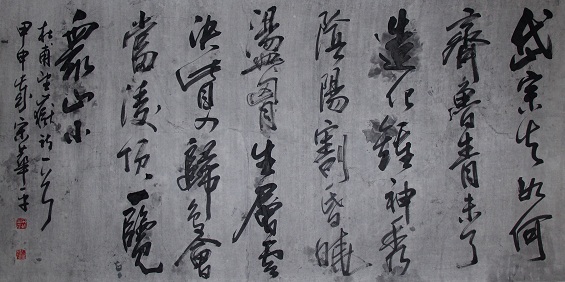 岱宗夫如何
齊魯青未了
造化鍾神秀
陰陽割昏曉
盪胷生層雲
決眥入歸鳥會
當凌頂一覽
眾山小
杜甫望嶽詩一首
甲申歲宗華